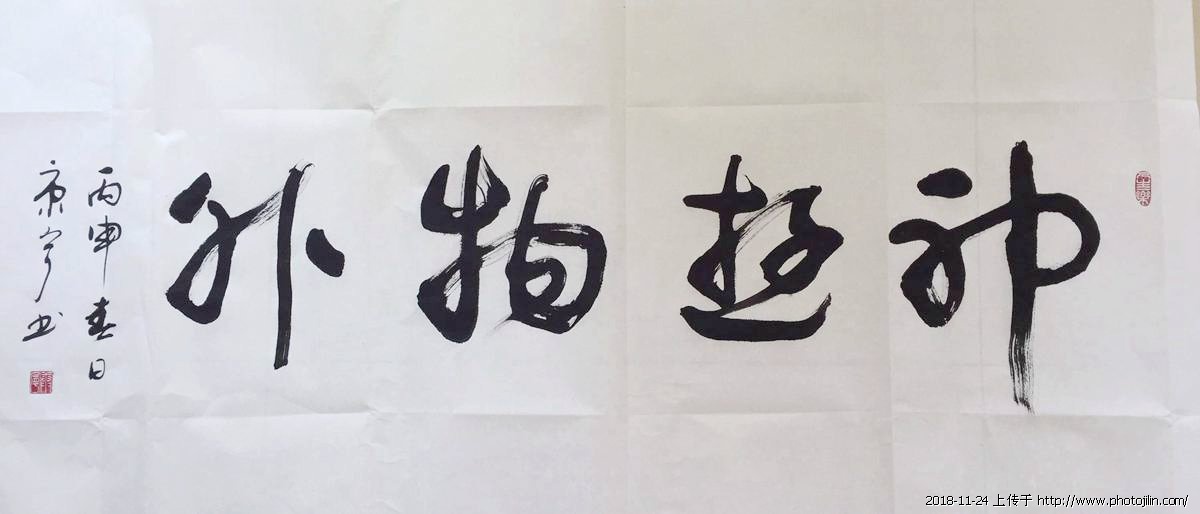 神遊物外
丙申春日
康宁书
2018-11-24 上传于 http://www.photojilin.com/